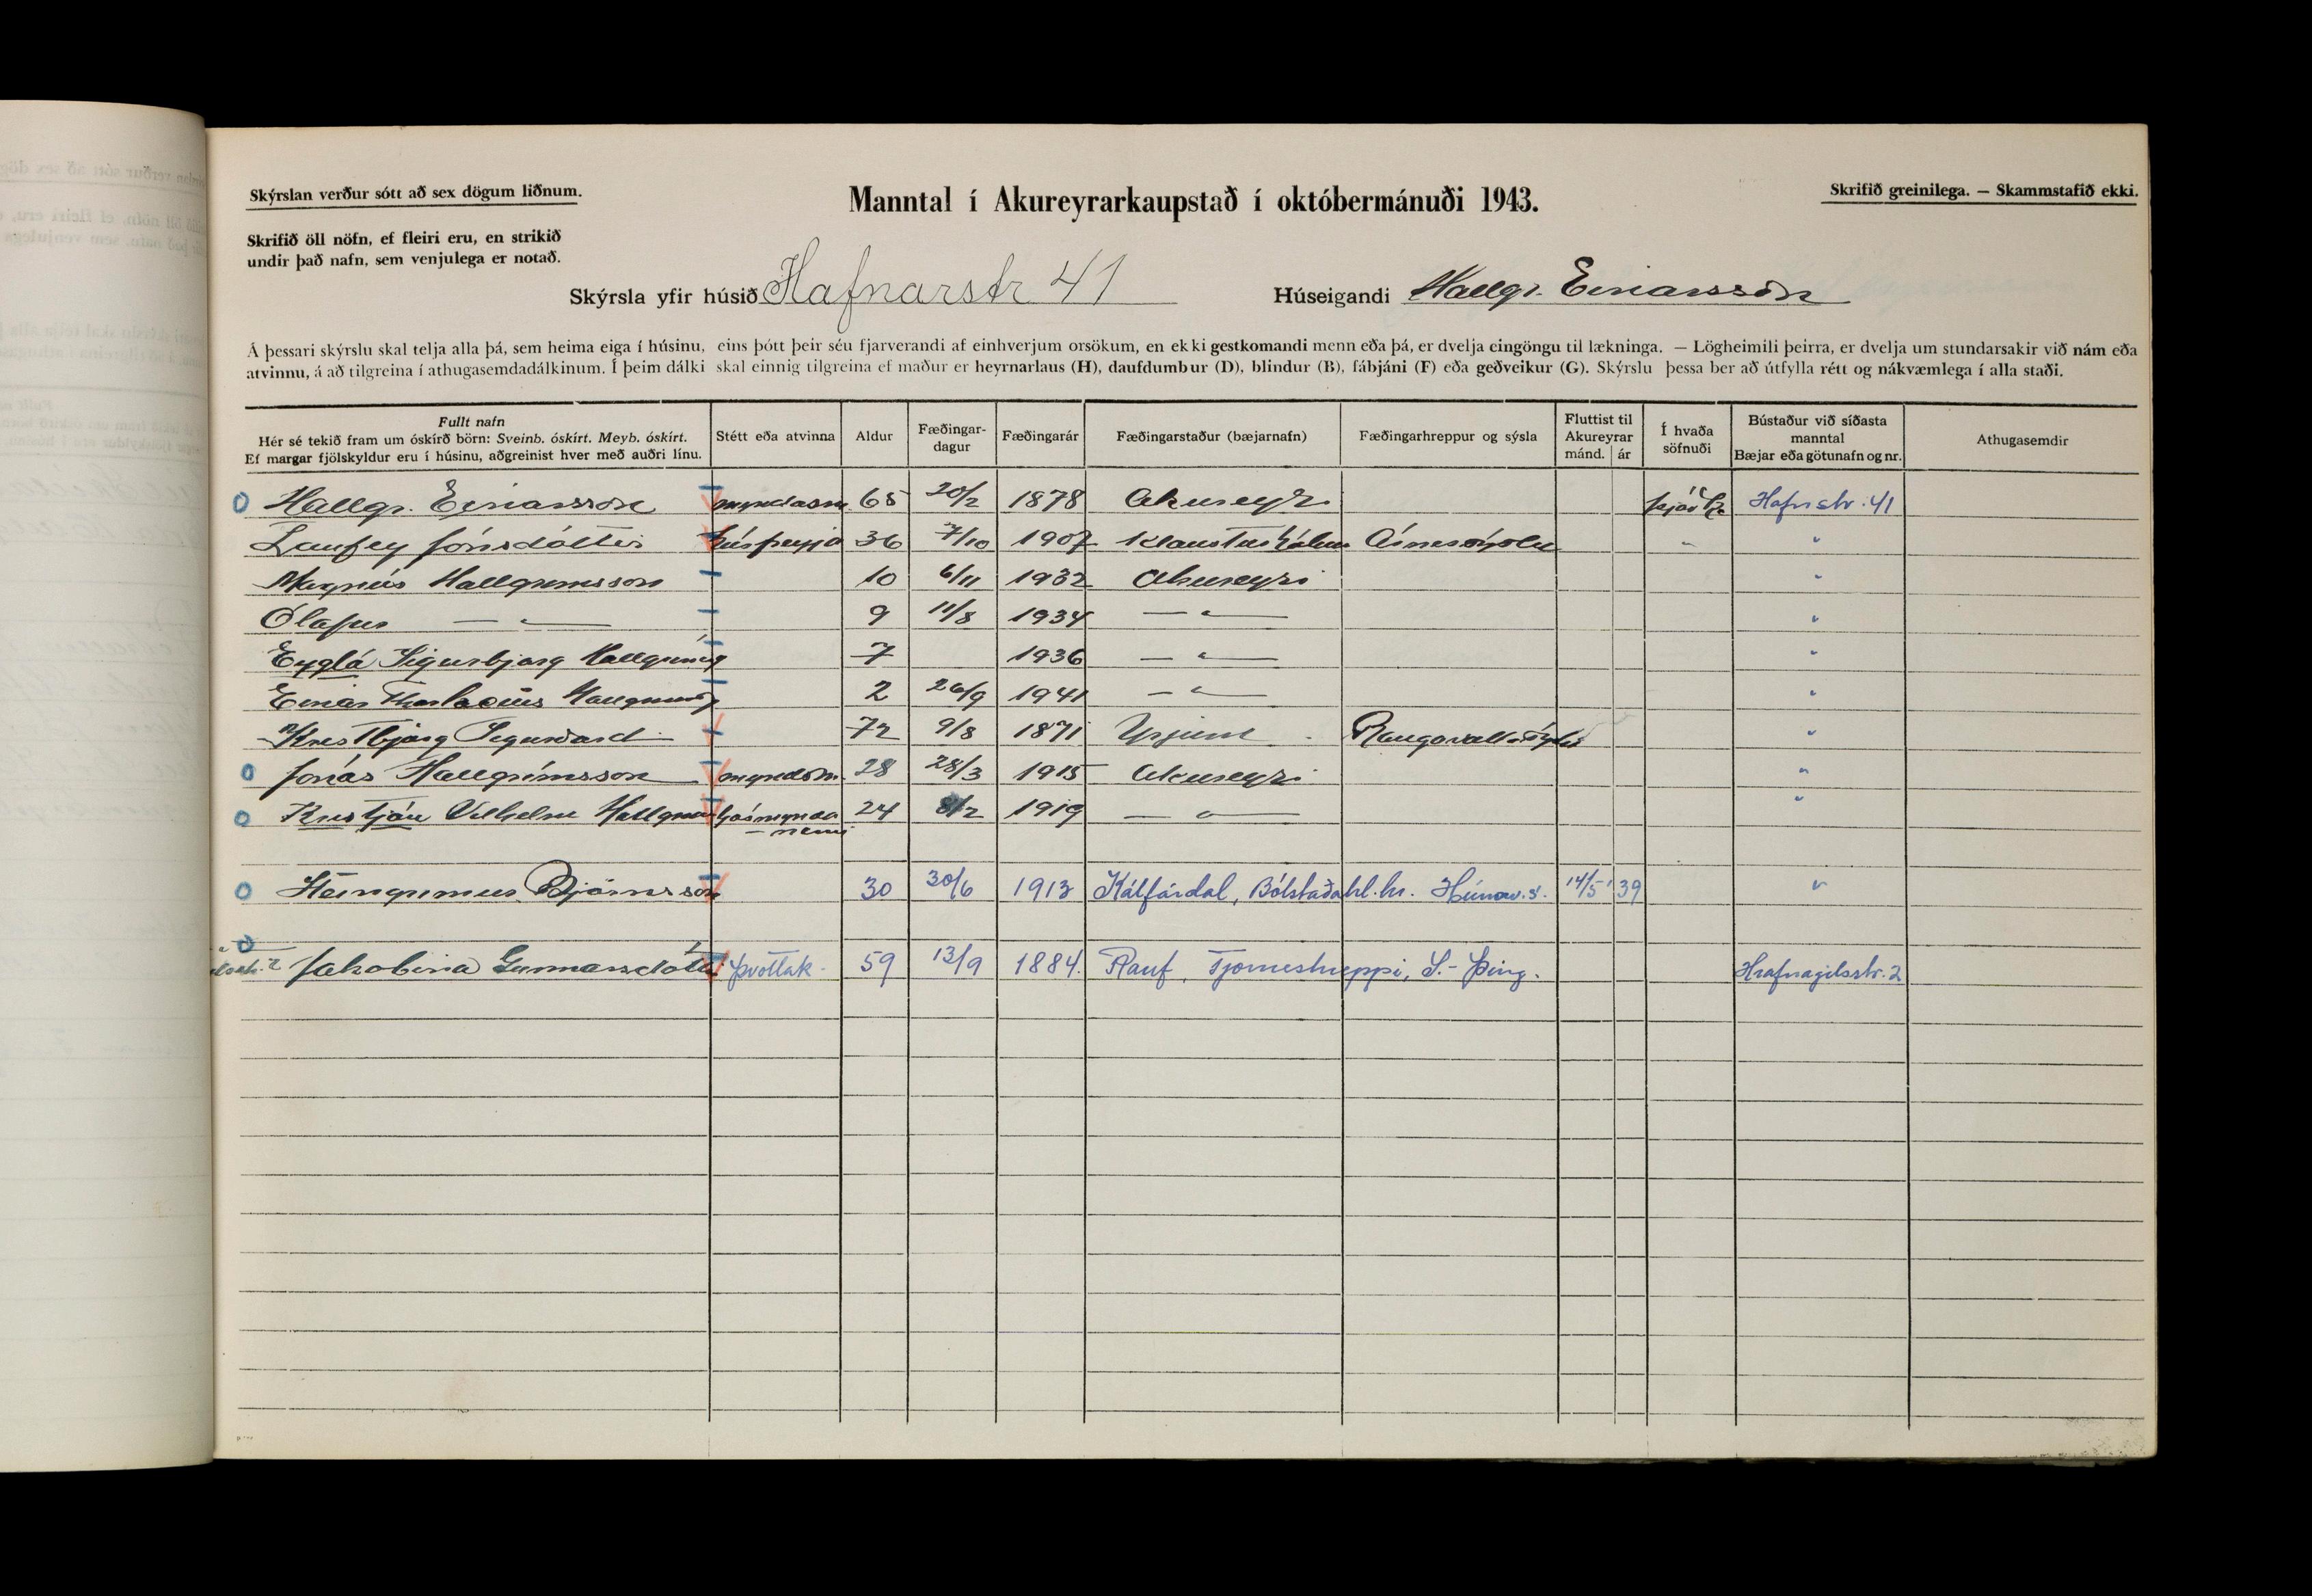 Skýrslan verður sótt að sex dögum liðnum.
Manntal í Akureyrarkaupstað í októbermánuði 1943.
Skrifið greinilega. — Skammstafið ekki.
Skrifið öll nöfn, ef fleiri eru, en strikið
undir það nafn, sem venjulega er notað.
Skýrsla yfir húsið Hafnarstr 41 Húseigandi Hallgr. Einarsson
Á þessari skýrslu skal telja alla þá, sem heima eiga í húsinu, eins þótt þeir séu fjarverandi af einhverjum orsökum, en ekki gestkomandi menn eða þá, er dvelja eingöngu til lækninga. — Lögheimili þeirra, er dvelja um stundarsakir við nám eða
atvinnu, á að tilgreina í athugasemdadálkinum. Í þeim dálki skal einnig tilgreina ef maður er heyrnarlaus (H), daufdumbur (D), blindur (B), fábjáni (F) eða geðveikur (G). Skýrslu þessa ber að útfylla rétt og nákvæmlega í alla staði.
Fullt nafn
Hér sé tekið fram um óskírð börn: Sveinb. óskírt. Meyb. óskírt.
Ef margar fjölskyldur eru í húsinu, aðgreinist hver með auðri línu.
Stétt eða atvinna
Aldur
Fæðingar-
dagur
Fæðingarár
Fæðingarstaður (bæjarnafn)
Fæðingarhreppur og sýsla
Fluttist til
Akureyrar
mánd. ár
Í hvaða
söfnuði
Bústaður við síðasta
manntal
Bæjar eða götunafn og nr.
Athugasemdir
Hallgr. Einarsson myndasm. 65 20/2 1878 Akureyri þjóðk. Hafnstr. 41
Laufey Jónsdóttir húsfreyja 36 7/10 1907 Klausturhólum Árnessýslu " "
Magnús Hallgrímsson 10 6/11 1932 Akureyri "
Ólafur — " — 9 11/8 1934 — " — "
Eygló Sigurbjörg Hallgríms 7 1936 — " — "
Einar Thorlacius Hallgríms 2 26/9 1941 — " — "
Kristbjörg 72 9/8 1871 "
Jónas Hallgrímsson myndsm. 28 28/3 1915 Akureyri "
Kristján Vilhelm Hallgríms ljósmynda 24 8/2 1919 — " — "
— nemi
Steingrímur Björnsson 30 30/6 1913 Kálfárdal, Bólstaðahl.hr. Húnav.s. 14/5 39 "
Jakobína Gunnarsdóttir þvottak. 59 13/9 1884. Rauf, Tjörneshreppi, S.-Þing. Hrafnagilsstr. 2